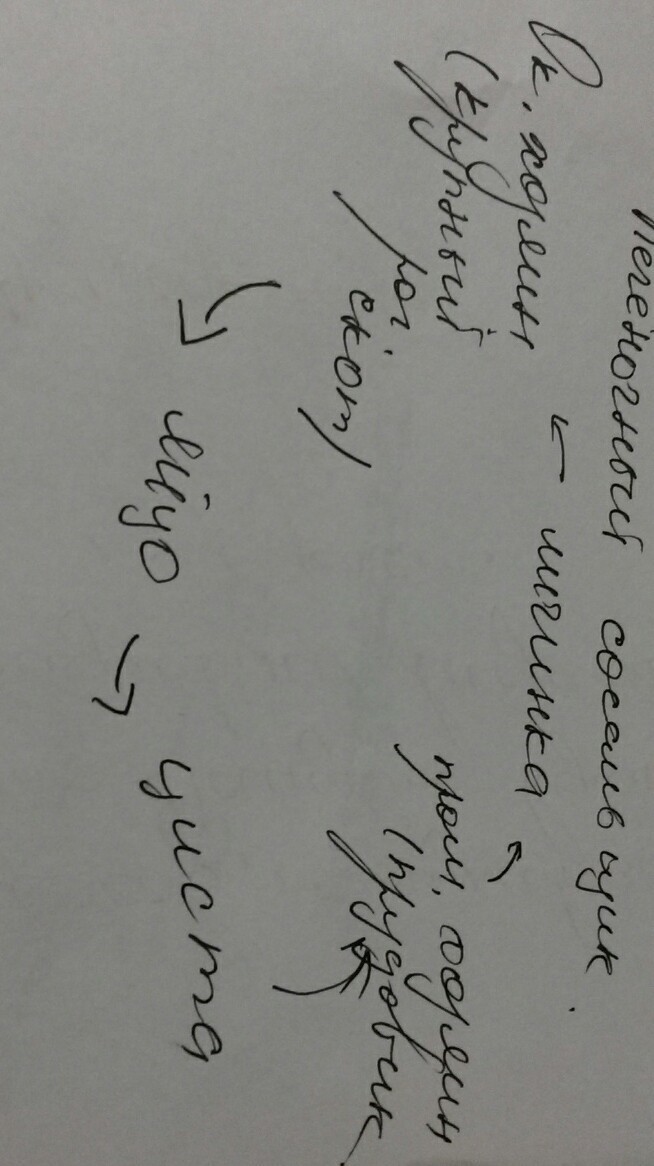 Печеночный сосальщик.
Ок. хозяин ← личинка
(крупный
рог.
скот)
пром. хозяин
(прудовик
→ яйцо → циста